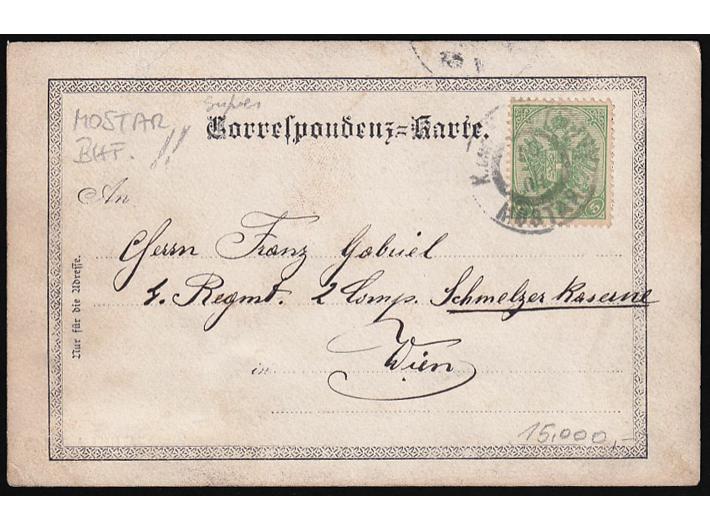 MOSTAR
BHF. !!
Super
Correspondenz=Karte.
K.
MOSTAR
5
An
Herrn Franz Gabriel
4. Regmt. 2 Comp. Schmelzer Kaserne
in Wien
Nur für die Adresse.
15.000,-